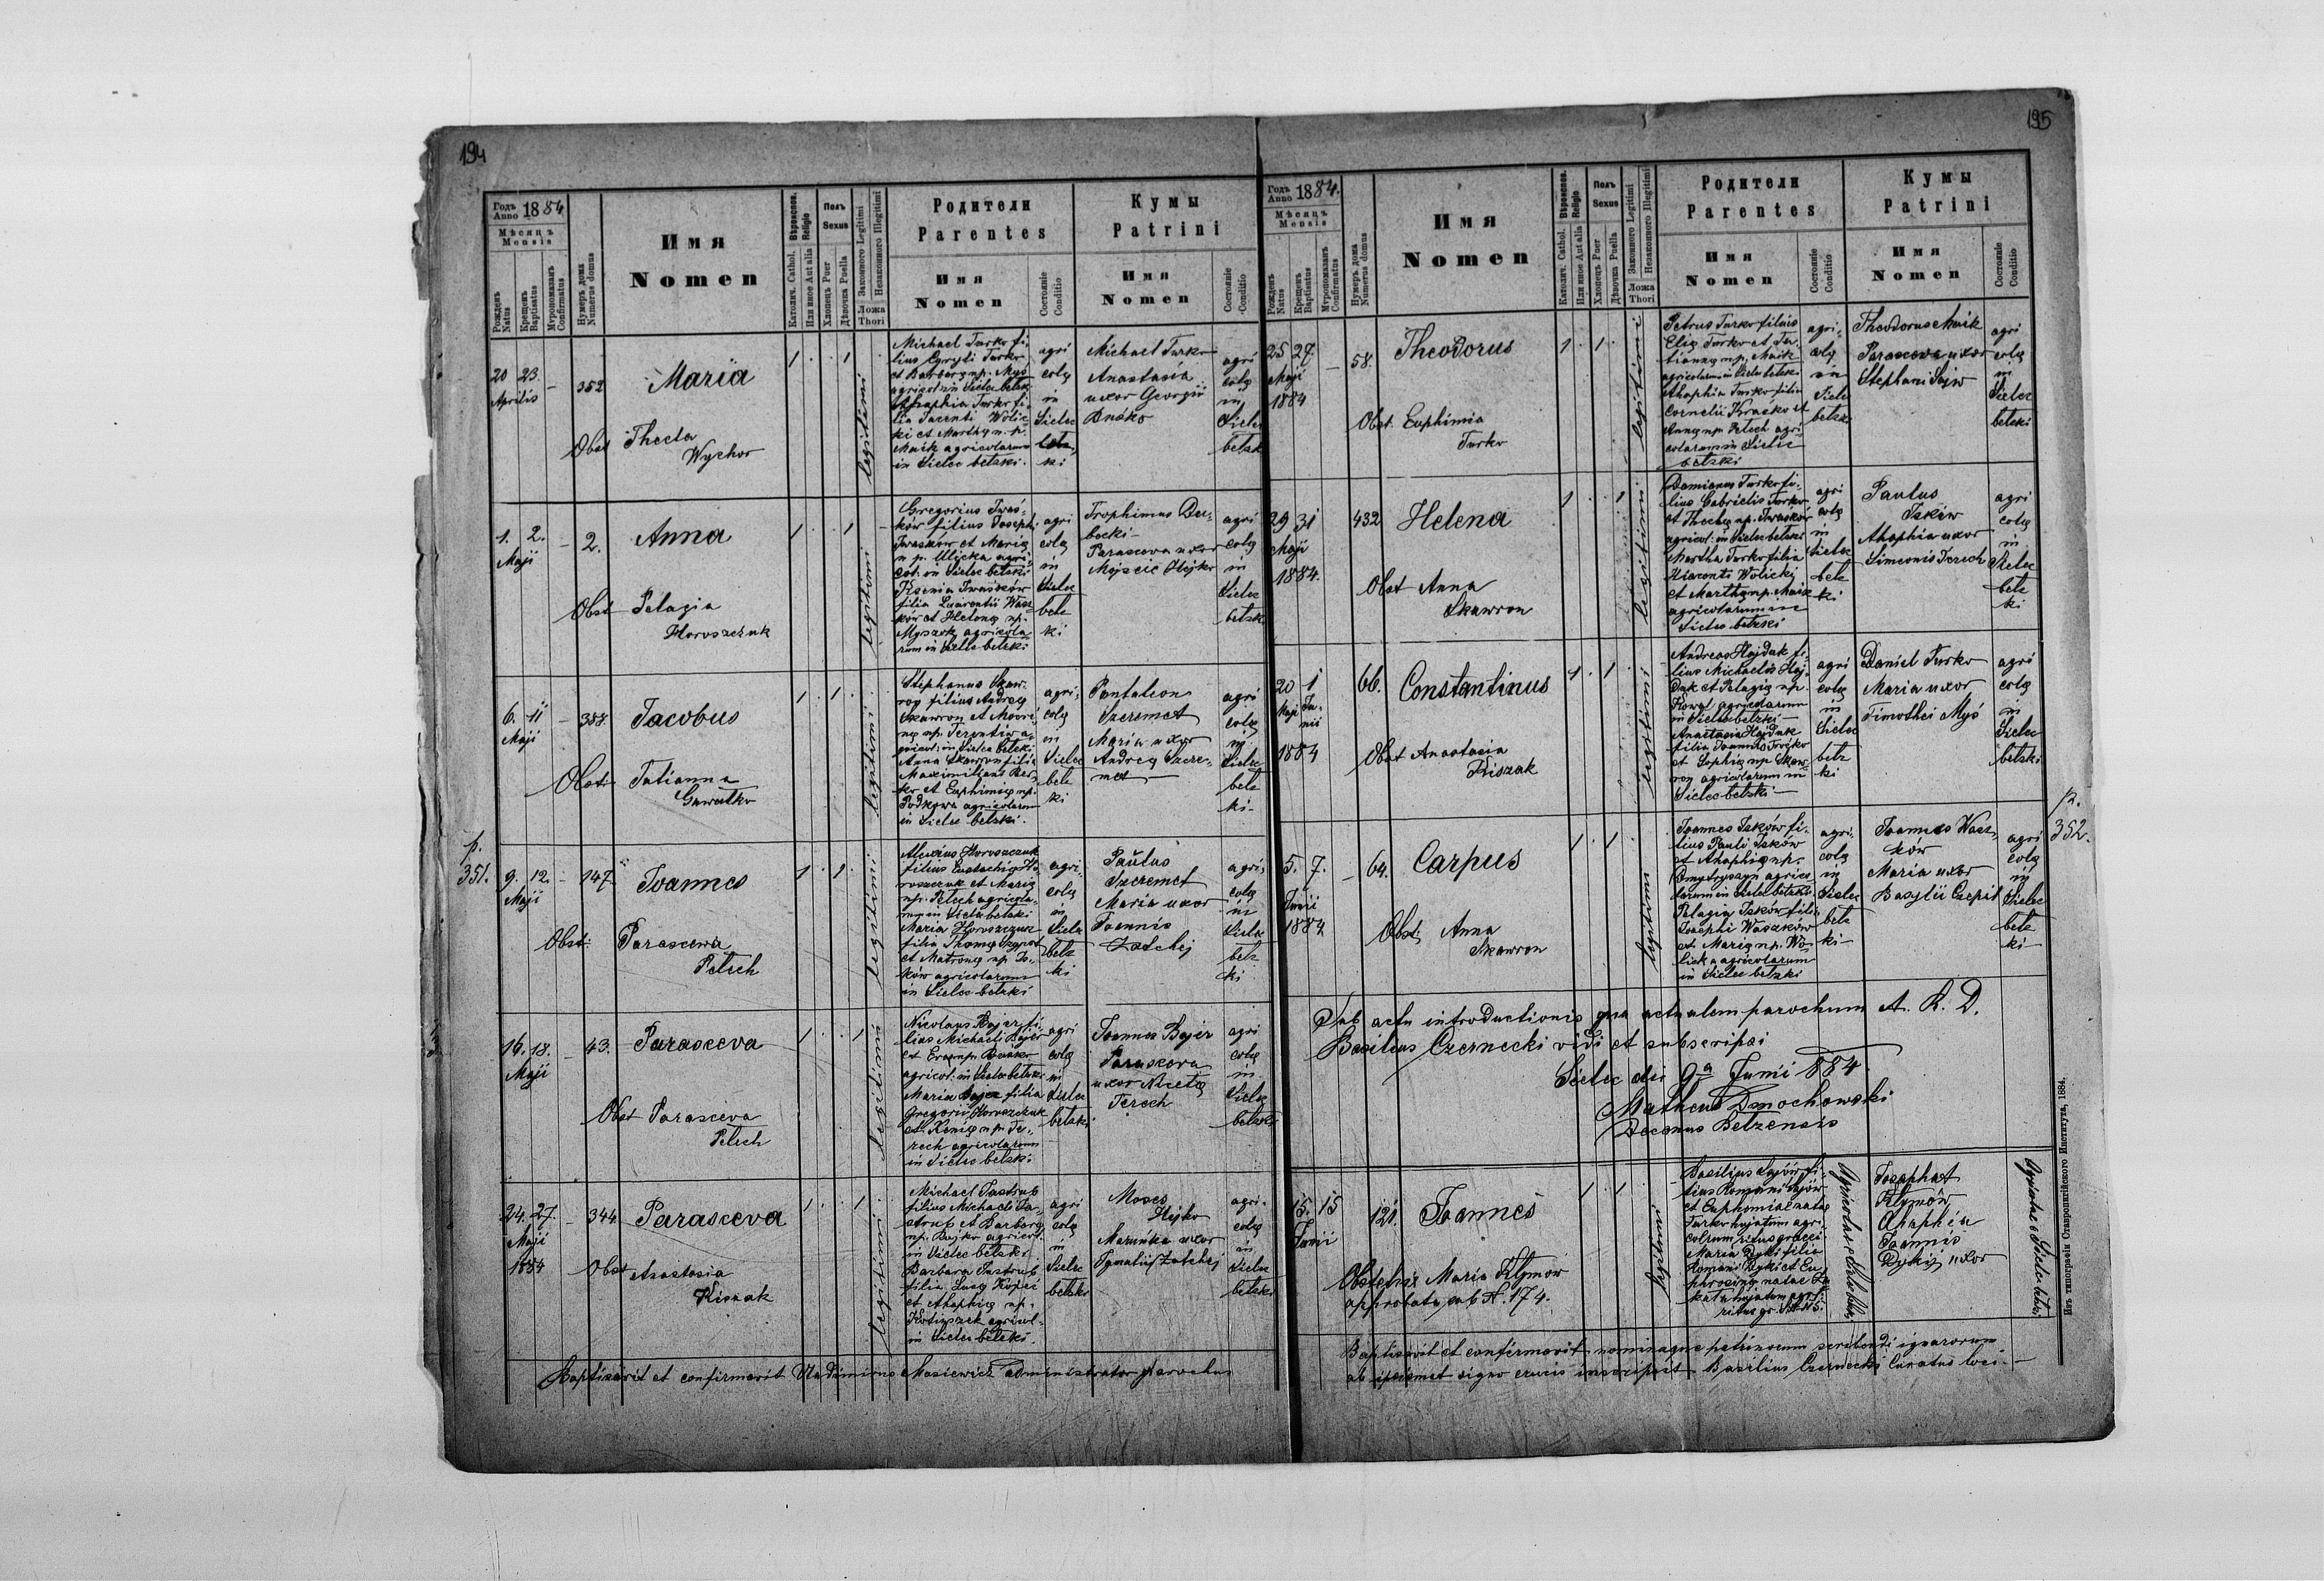 194
Годъ Anno 1884
Мѣсяцъ
Mensis
Рожденъ Natus
Крещенъ Baptisatus
Мѵропомазанъ Confirmatus
Нумеръ дома Numerus domus
Имя
Nomen
Вѣроиспов. Religio
Католич. Cathol.
Или иное Aut alia
Полъ
Sexus
Хлопецъ Puer
Дѣвочка Puella
Законного Legitimi
Незаконного Illegitimi
Ложа
Thori
Родители
Parentes
Имя
Nomen
Состояніе Conditio
Кумы
Patrini
Имя
Nomen
Состояніе Conditio
20 23
Aprilis
–
352
Maria
Obst Thecla
Wychor
1 · · 1
legitimi
Michael Turko fi-
lius Cyryli Turko
et Barbarę np. Myś
agricol: in Sielec bełzki
Ahaphia Turko fi-
lia Jacenti Wolic-
ki et Marthę n. p.
Maik agricolarum
in Sielec bełzki.
agri
colę
in
Sielec
bełz
ki
Michael Turko
Anastasia
uxor Georgii
agri
colę
in
Sielec
bełzk
1. 2.
Maji
–
2.
Anna
Obst Pelagia
Horoszczuk
1 · · 1
legitimi
Gregorius Iwaś-
ków filius Josephi
Iwasków et Marię
n p. Ulicka agri-
col. in Sielec bełzki
Ksenia Iwaśków
filia Laurentii Wasz-
ków et Helenę np.
Myszok agricola-
rum in Sielec bełzki
agri
colę
in
Sielec
bełz
ki
Trophimus Du-
becki
Parasceva uxor
Mojseie Hejko
agri
colę
in
Sielec
bełzk
6. 11
Maji
–
Jacobus
Obst: Tatianna
Gawałko
1 · 1 ·
legitimi
Stephanus Skaw-
ron filius Andreę
Skawron et
np. Terentiw a-
gricol: in Sielec bełzki
Anna Skawron filia
Maximiliani
et Euphimię np.
Podkowa agricolarum
in Sielec bełzki.
agri-
colę
in
Sielec
bełz
ki
Pantaleon
Szeremet
Maria uxor
Andreę Szere-
met
agri
colę
in
Sielec
bełz
ki
p.
351.
9. 12.
Maji
–
147
Joannes
Obst: Parasceva
Petech
1 · 1 ·
legitimi
Alexius Horoszczuk
filius Eustachię Ho-
roszczuk et Marię
np. Petech agricola-
rum in Sielec bełzki
Maria Horoszczuk
filia Thomę
et Matronę np. Is-
ków agricolarum
in Sielec bełzki
agri-
colę
in
Sielec
bełz
ki
Paulus
Szeremet
Maria uxor
Joannis
Zatchej
agri-
colę
in
Sielec
bełz
ki
16. 18.
Maji
–
43.
Parasceva
Obst Parasceva
Petech
1 · · 1
legitimi
Nicolaus Bajer fi-
lius Michaeli Bajer
et Evę np.
agricol: in Sielec bełzki
Maria Bajer filia
Gregorii Horoszczuk
et Xenię np. Te-
rech agricolarum
in Sielec bełzki
agri
colę
in
Sielec
bełzki
Joannes Bajer
Parasceva
uxor Nicetę
Terech
agri
colę
in
Sielec
bełzki
24. 27.
Maji
1884
–
344
Parasceva
Obst Anastasia
Kiszak
1 · · 1
legitimi
Michael Jastrub
filius Michaeli Ja-
strub et Barbarę
np. Bojko agricol.
in Sielec bełzki
Barbara Jastrub
filia Lucę
et Ahaphię np.
agricol-
in Sielec bełzki.
agri
colę
in
Sielec
bełzki
Moses
Hejko
Marinka uxor
Ignatii Zatchej
agri-
colę
in
Sielec
bełzki
Baptisavit et confirmavit Vladimirus Masiewicz administrator parochus
195
Годъ Anno 1884.
Мѣсяцъ
Mensis
Рожденъ Natus
Крещенъ Baptisatus
Мѵропомазанъ Confirmatus
Нумеръ дома Numerus domus
Имя
Nomen
Вѣроиспов. Religio
Католич. Cathol.
Или иное Aut alia
Полъ
Sexus
Хлопецъ Puer
Дѣвочка Puella
Законного Legitimi
Незаконного Illegitimi
Ложа
Thori
Родители
Parentes
Имя
Nomen
Состояніе Conditio
Кумы
Patrini
Имя
Nomen
Состояніе Conditio
25 27.
Maji
1884
–
58.
Theodorus
Obst. Euphimia
Turko
1 · 1 ·
legitimi
Petrus Turko filius
Elię Turko et Ta-
tiannę np. Maik
agricolarum in Sielec bełzki
Ahaphia Turko filia
Cornelii Kraśko et
Annę np Petech agri-
colarum in Sielec
bełzki
agri-
colę
in
Sielec
bełzki
Theodorus Maik
Parasceva uxor
Stephani Sajw
agri
colę
in
Sielec
bełzki
29 31
Maji
1884.
432
Helena
Obst Anna
Skawron
1 · · 1
legitimi
Damianus Turko fi-
lius Gabrielis Turko
et Theclę np. Iwasków
agricol: in Sielec bełzki
Martha Turko filia
Hiacenti Wolicki
et Marthę np. Maik
agricolarum in
Sielec bełzki
agri
colę
in
Sielec
bełz
ki
Paulus
Iśkiw
Ahaphia uxor
Simeonis Terech
agri
colę
in
Sielec
bełz
ki
20 1
Maji Ju-
nii
1884
66.
Constantinus
Obst Anastasia
Kiszak
1 · 1 ·
legitimi
Andreas Hajduk fi-
lius Michaelis Haj-
duk et Pelagię np.
Kowal agricolarum
in Sielec bełzki
Anastasia Hajduk
filia Joannis
et Sophię np Skaw-
ron agricolarum in
Sielec bełzki
agri
colę
in
Sielec
bełz
ki
Daniel Turko
Maria uxor
Timothei Myś
agri
colę
in
Sielec
bełzki
p.
352.
5. 7.
Junii
1884
–
64.
Carpus
Obst: Anna
Skawron
1 · 1 ·
legitimi
Joannes Isków fi-
lius Pauli Isków
et Ahaphię np.
Dmytryszyn agrico-
larum in Sielec bełzki
Pelagia Isków filia
Josephi Waszków
et Marię np. Wo-
licka agricolarum
in Sielec bełzki
agri-
colę
in
Sielec
bełz
ki
Joannes Wasz-
ków
Maria uxor
Basylii Czepil
agri
colę
in
Sielec
bełz
ki
Sub actu introductionis qua actualem parochum A. R. D.
Basilius Czernecki vidi et subscripsi
Sielec die 9a Junii 884
Matheus Dmochowski
Decanus Belzensis
15. 15
Junii
121.
Joannes
Obstetrix Maria Klymów
approbata sub N. 174.
1 · 1 ·
legitimi
Basilius Sajów fi-
lius Romani Sajów
et Euphemiae natae
Turko hujatum agri-
colarum ritus graeci
Maria Dykij filia
Romani Dykij et Eu-
phrosinę natae
hujatum agri.
ritus gr.
Agricolae Sielec bełzki
Josaphat
Klymów
Ahaphia
Joannis
Dykij uxor
Agricolae Sielec bełzki
Baptisavit et confirmavit nominaque patrinorum scribendi ignarorum
ab ipsismet signo crucis inscripsit Basilius Czernecki Curatus loci.
Изъ типографіи Ставропигійского Института, 1884.